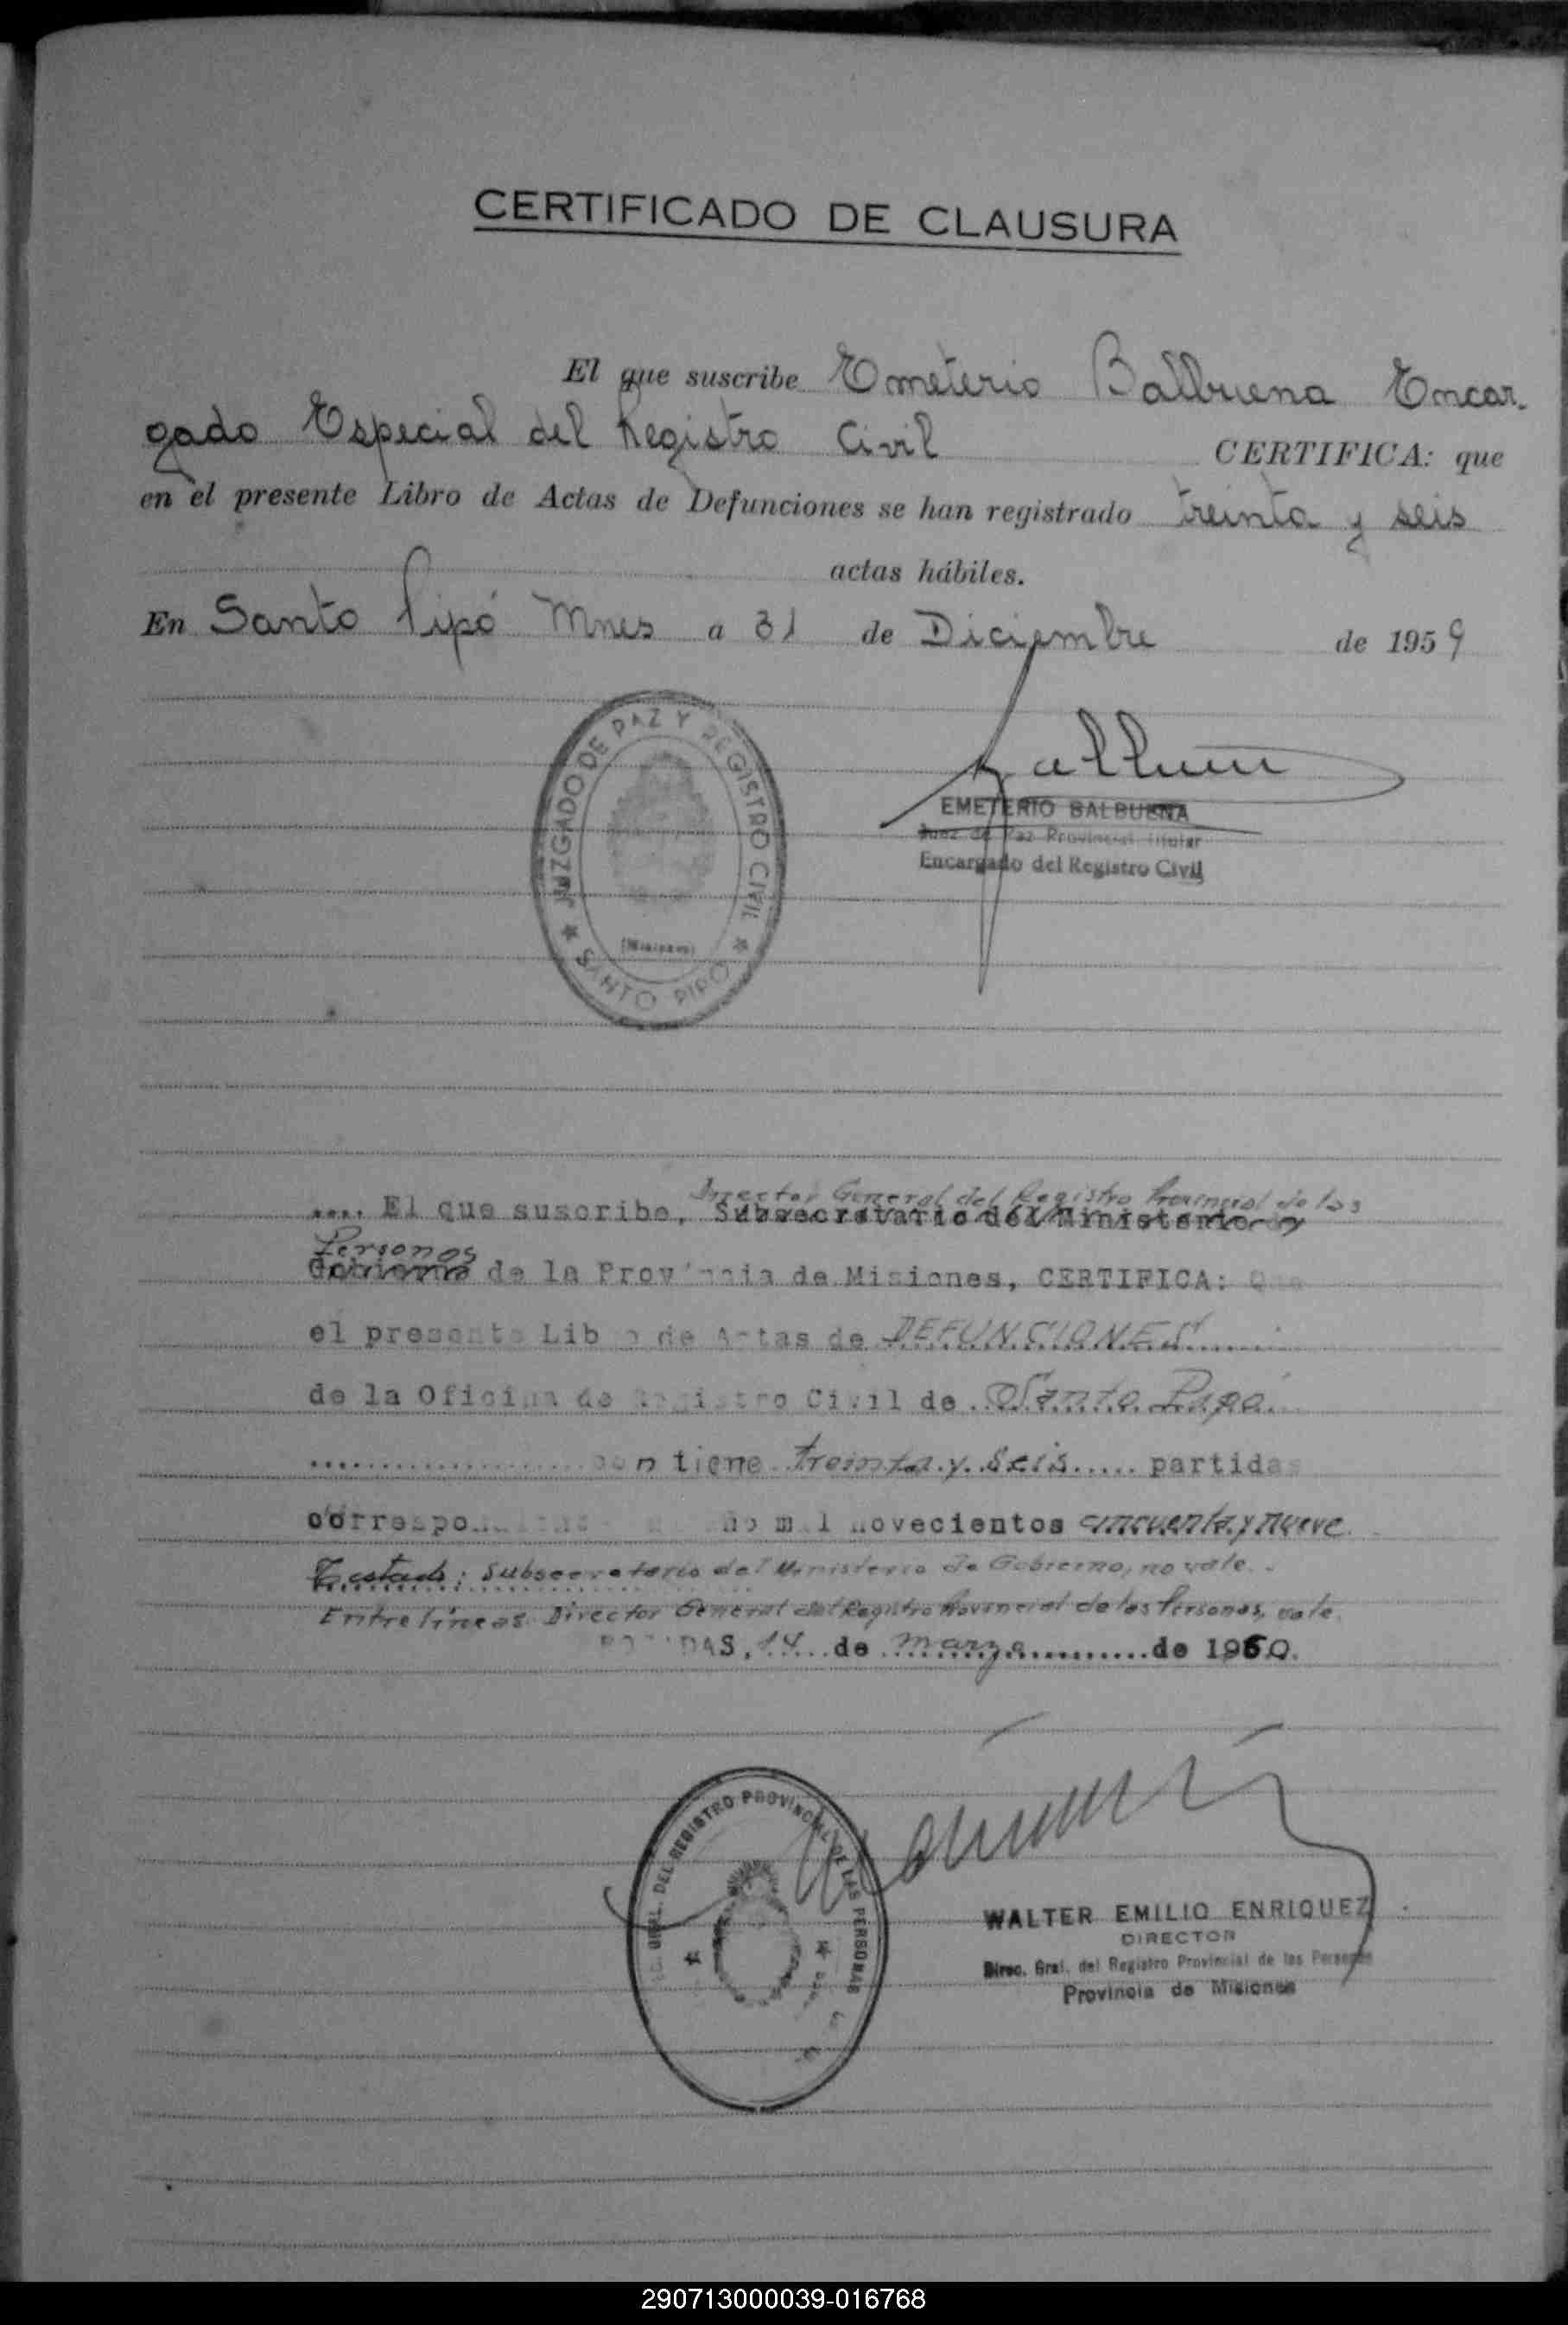 CERTIFICADO DE CLAUSURA
El que suscribe Emeterio Balbuena Encar-
gado Especial del Registro Civil CERTIFICA: que
en el presente Libro de Actas de Defunciones se han registrado treinta y seis
actas hábiles.
En Santo Pipó Mnes a 31 de Diciembre de 1959
JUZGADO DE PAZ Y REGISTRO CIVIL
(Misiones)
SANTO PIPO
Balbuena
EMETERIO BALBUENA
Juez de Paz Provincial Titular
Encargado del Registro Civil
Director General del Registro Provincial de las
.... El que suscribe, Subsecretario del Ministerio de
Personas
Gobierno de la Provincia de Misiones, CERTIFICA: Que
el presente Libro de Actas de DEFUNCIONES
de la Oficina de Registro Civil de Santo Pipó.
contiene treinta y seis..... partidas
correspondientes año mil novecientos cincuenta y nueve.
Testado: Subsecretario del Ministerio de Gobierno, no vale.
Entre líneas Director General del Registro Provincial de las Personas, vale.
POSADAS, 14 de marzo de 1960.
GRAL. DEL REGISTRO PROVINCIAL DE LAS PERSONAS
WALTER EMILIO ENRIQUEZ
DIRECTOR
Direc. Gral. del Registro Provincial de las Personas
Provincia de Misiones
290713000039-016768